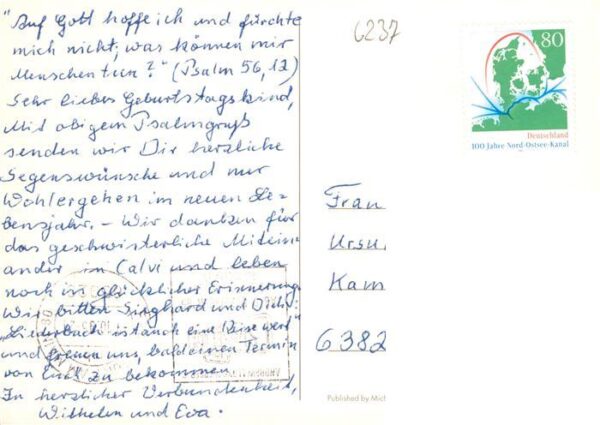 "Auf Gott hoffe ich und fürchte
mich nicht; was können mir
Menschen tun?" (Psalm 56,12)
Sehr liebes Geburtstagskind,
Mit obigem Psalmgruß
senden wir Dir herzliche
Segenswünsche und nur
Wohlergehen im neuen Le-
bensjahr. – Wir danken für
das geschwisterliche Mitein-
ander in Calvi und leben
noch in glücklicher Erinnerung.
Wir bitten Singhard und Dich:
"Liederbach ist auch eine Reise wert"
und freuen uns, bald einen Termin
von Euch zu bekommen.
In herzlicher Verbundenheit,
Wilhelm und Eva.
6237
80
Deutschland
100 Jahre Nord-Ostsee-Kanal
Frau
Ursu
Kam
6382
Published by Mich